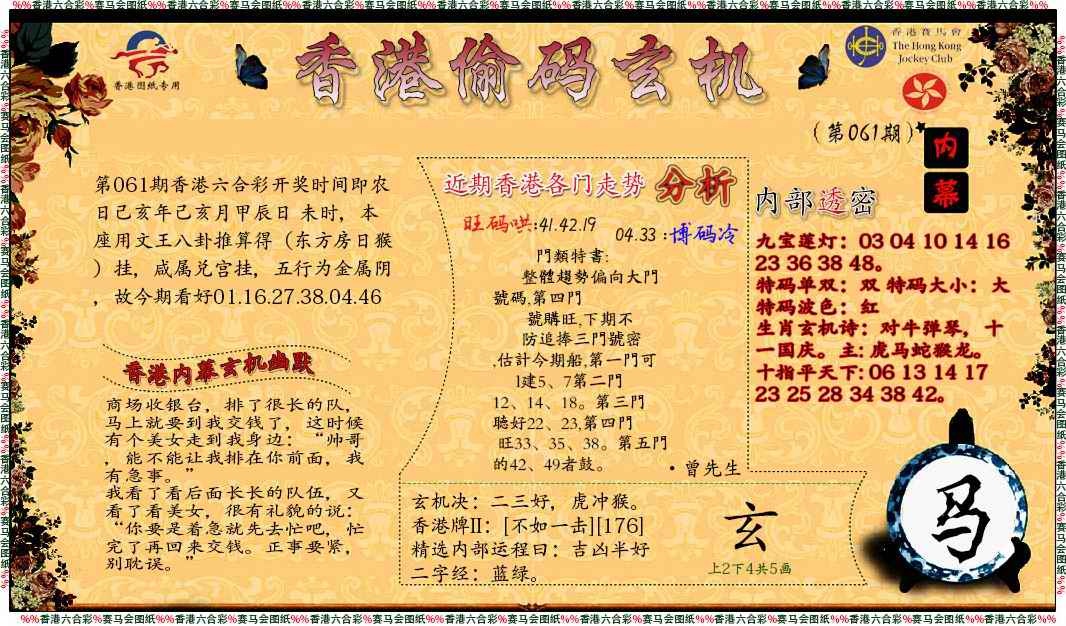 %%香港六合彩%赛马会图纸%%香港六合彩%赛马会图纸%%香港六合彩%赛马会图纸%%香港六合彩%赛马会图纸%%香港六合彩%赛马会图纸%%香港六合彩%赛马会图纸%%香港六合彩%赛马会图纸%%
香港图纸专用
香港偷码玄机
香港賽馬會
The Hong Kong
Jockey Club
(第061期)
内
幕
第061期香港六合彩开奖时间即农
日己亥年己亥月甲辰日 未时，本
座用文王八卦推算得（东方房日猴
）挂，咸属兑宫挂，五行为金属阴
，故今期看好01.16.27.38.04.46
香港内幕玄机幽默
商场收银台，排了很长的队，
马上就要到我交钱了，这时候
有个美女走到我身边：“帅哥
，能不能让我排在你前面，我
有急事。”
我看了看后面长长的队伍，又
看了看美女，很有礼貌的说：
“你要是着急就先去忙吧，忙
完了再回来交钱。正事要紧，
别耽误。”
近期香港各门走势 分析
旺码哄:41.42.19
04.33 :博码冷
門類特書:
整體趨勢偏向大門
號碼,第四門
號購旺,下期不
防追捧三門號密
,估計今期船,第一門可
l建5、7第二門
12、14、18。第三門
聽好22、23,第四門
旺33、35、38。第五門
的42、49者鼓。
·曾先生
玄机决：二三好，虎冲猴。
香港牌II：[不如一击][176]
精选内部运程曰：吉凶半好
二字经：蓝绿。
玄
上2下4共5画
内部透密
九宝莲灯：03 04 10 14 16
23 36 38 48。
特码单双：双 特码大小：大
特码波色：红
生肖玄机诗：对牛弹琴，十
一国庆。主:虎马蛇猴龙。
十指平天下:06 13 14 17
23 25 28 34 38 42。
马
%%香港六合彩%赛马会图纸%%香港六合彩%赛马会图纸%%香港六合彩%赛马会图纸%%香港六合彩%赛马会图纸%%香港六合彩%赛马会图纸%%香港六合彩%赛马会图纸%%香港六合彩%赛马会图纸%%